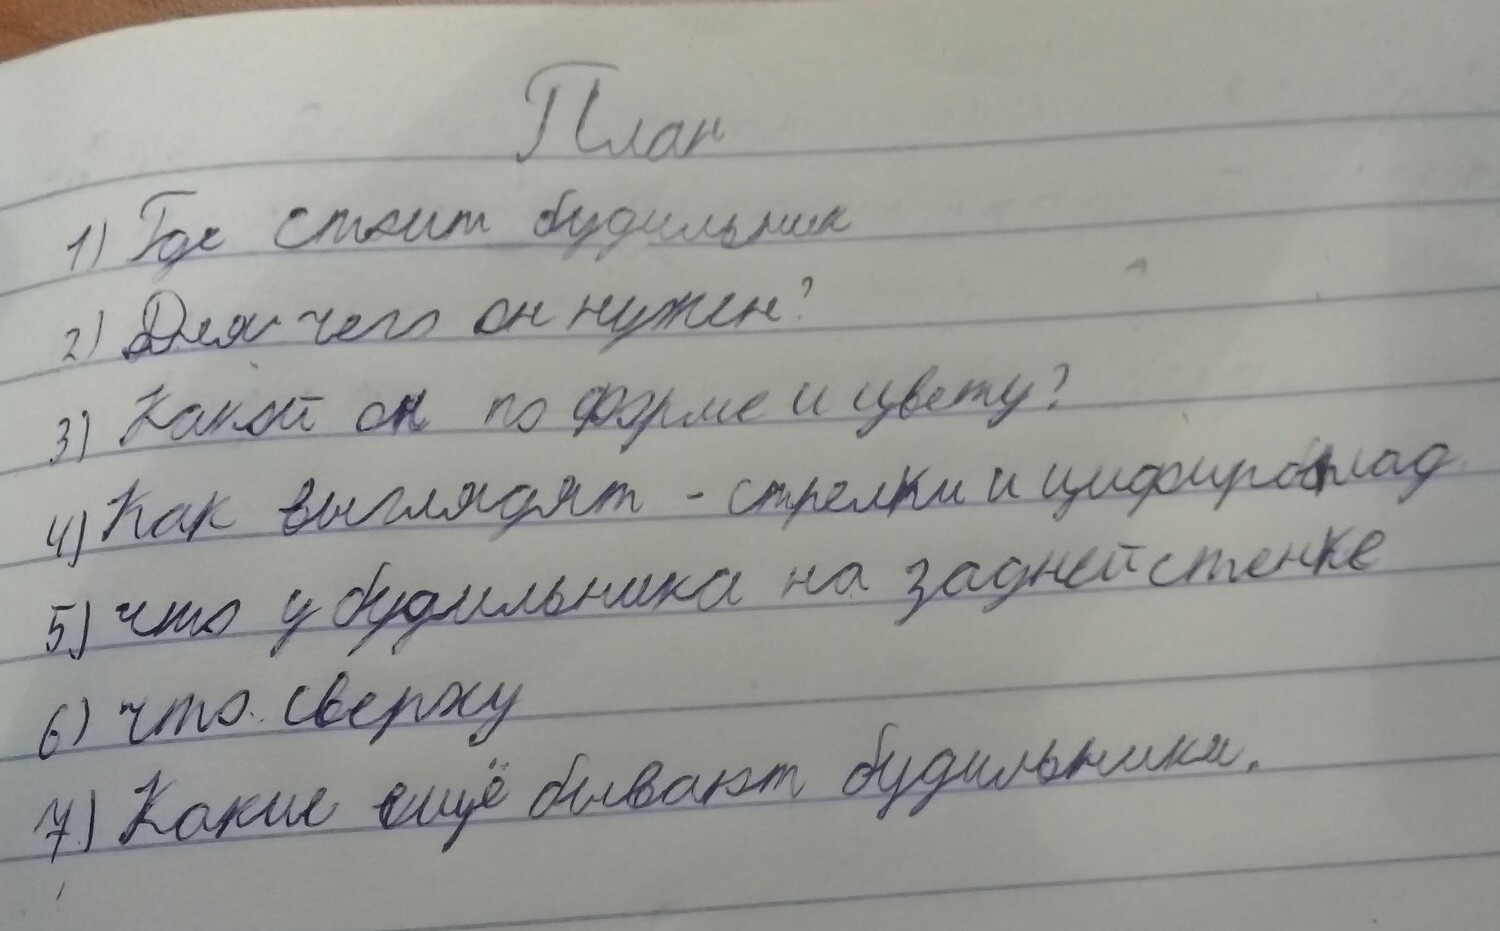 План
1) Где стоит будильник
2) Для чего он нужен?
3) Какой он по форме и цвету?
4) Как выглядят - стрелки и цифирблад
5) что у будильника на задней стенке
6) что сверху
7) Какие ещё бывают будильники.